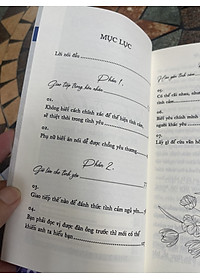 MỤC LỤC
Lời nói đầu
Phần 1.
Giao tiếp trong hôn nhân
01.
Không biết cách chính xác để thể hiện tình cảm,
sẽ thiệt thòi trong tình yêu
02.
Phụ nữ biết ăn nói dễ được chồng yêu thương
Phần 2.
Giữ lửa cho tình yêu
03.
Giao tiếp thế nào để đánh thức tình cảm ngủ yên
04.
Bạn phải đọc vị được đàn ông trước thì mới có thể
khiến anh ta hiểu bạn
05.
Có thể cãi nhau, nhưng
tình cảm
06.
Nhìn
người khác yêu
07.
Lấy gì để cứu vãn